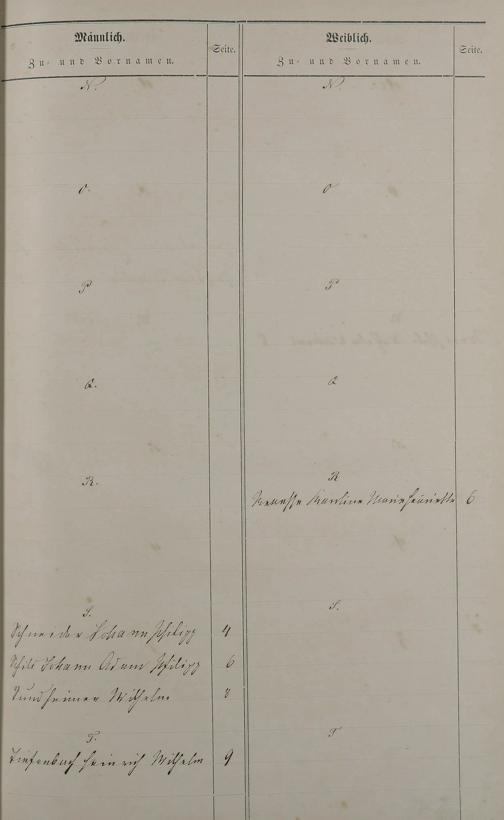 Männlich.
Zu- und Vornamen.
Seite.
N.
O.
P
Q.
R.
S.
Schneider Johann Philipp 4
Schild Johann Adam Philipp 6
Sundheimer Wilhelm 8
T.
Tiefenbach Heinrich Wilhelm 9
Weiblich.
Zu- und Vornamen.
Seite.
N.
O
P
Q
R
Karoline Marie Henriette 6
S.
T